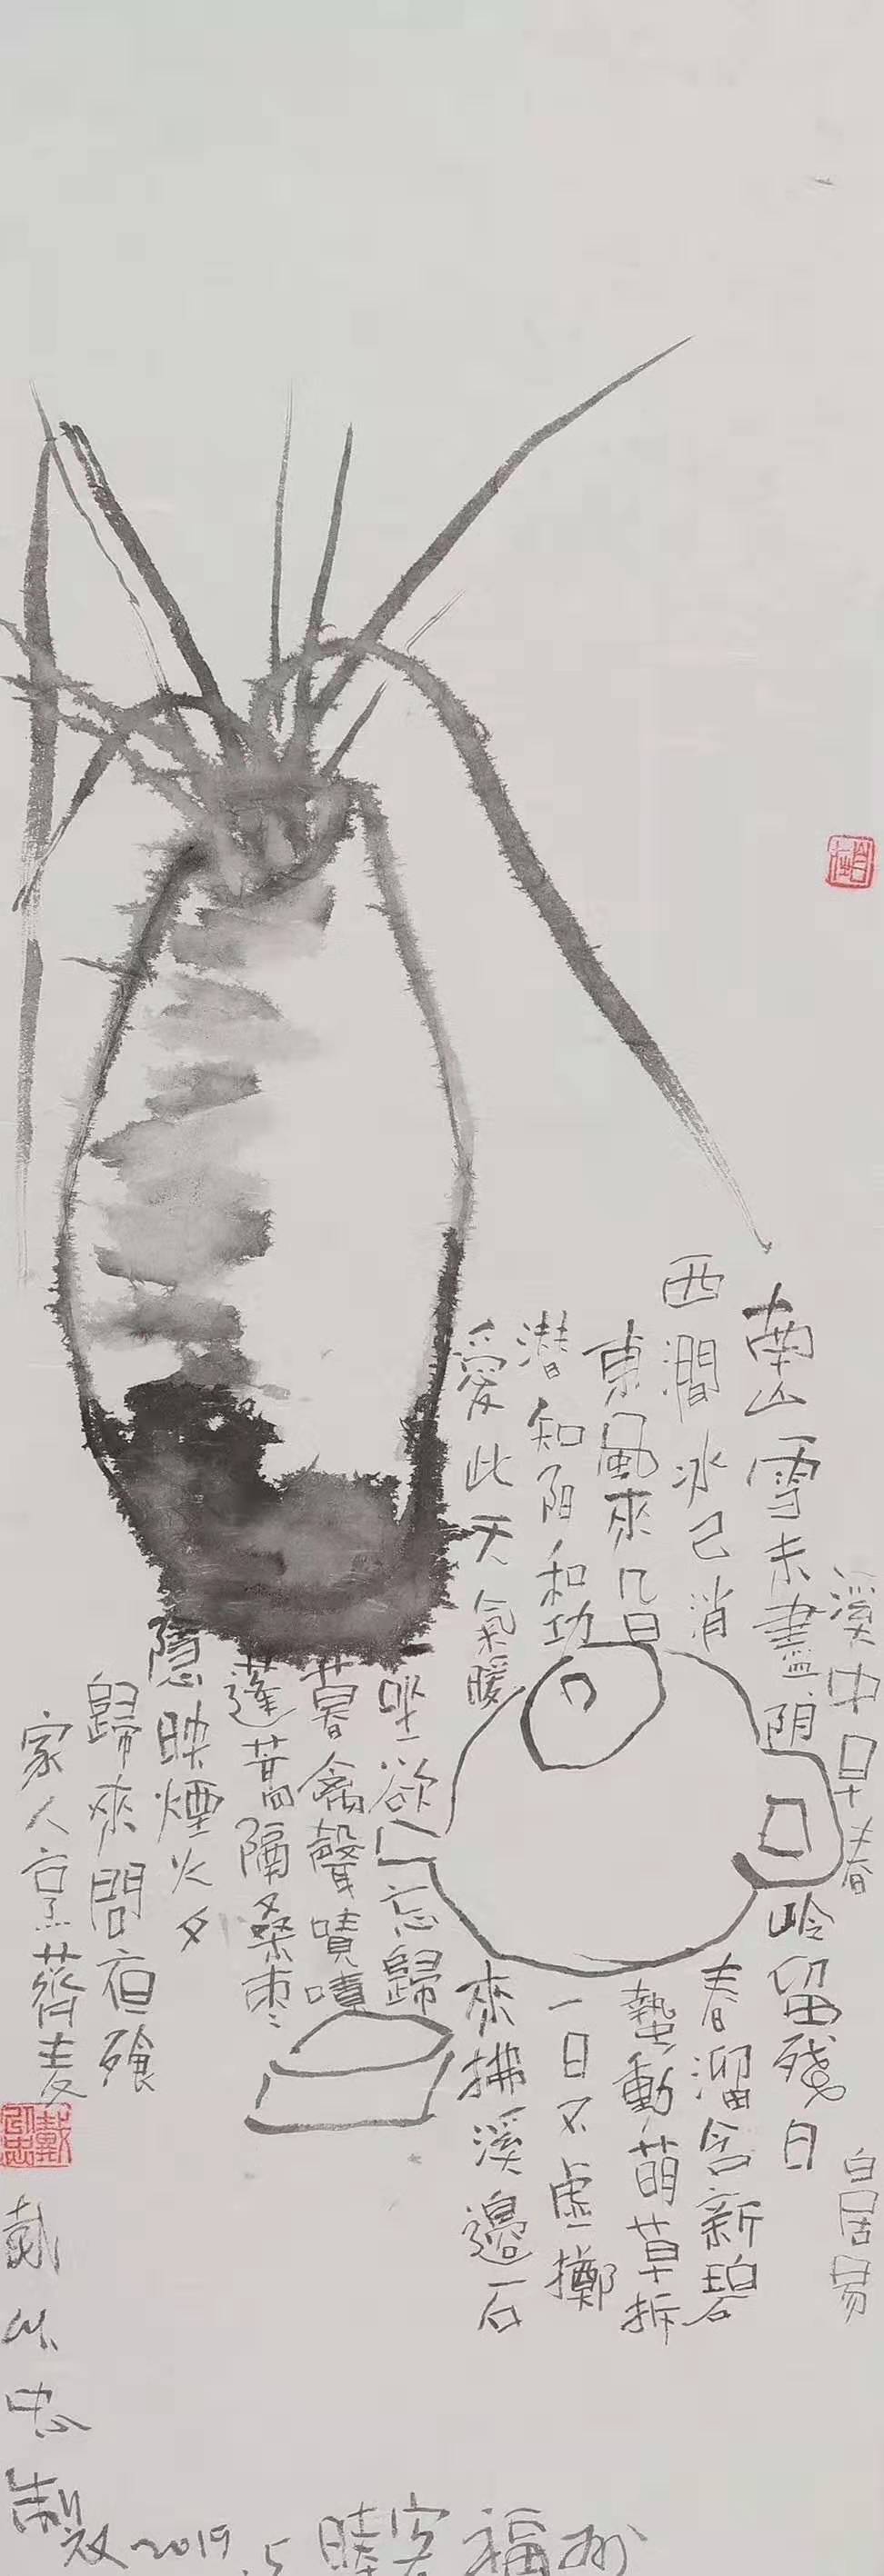 溪中早春 白居易
南山雪未盡阴岭留殘白
西澗冰已消春溜含新碧
東風來几日蟄動萌草拆
潜知阳和功一日不虛擲
愛此天氣暖來拂溪邊石
坐欲忘歸
暮禽聲嘖嘖
蓬蒿隔桑枣
隱映煙火夕
歸來問夜飱
家人烹薺麦
戴以忠
戴以忠製
2019.5 時客福州